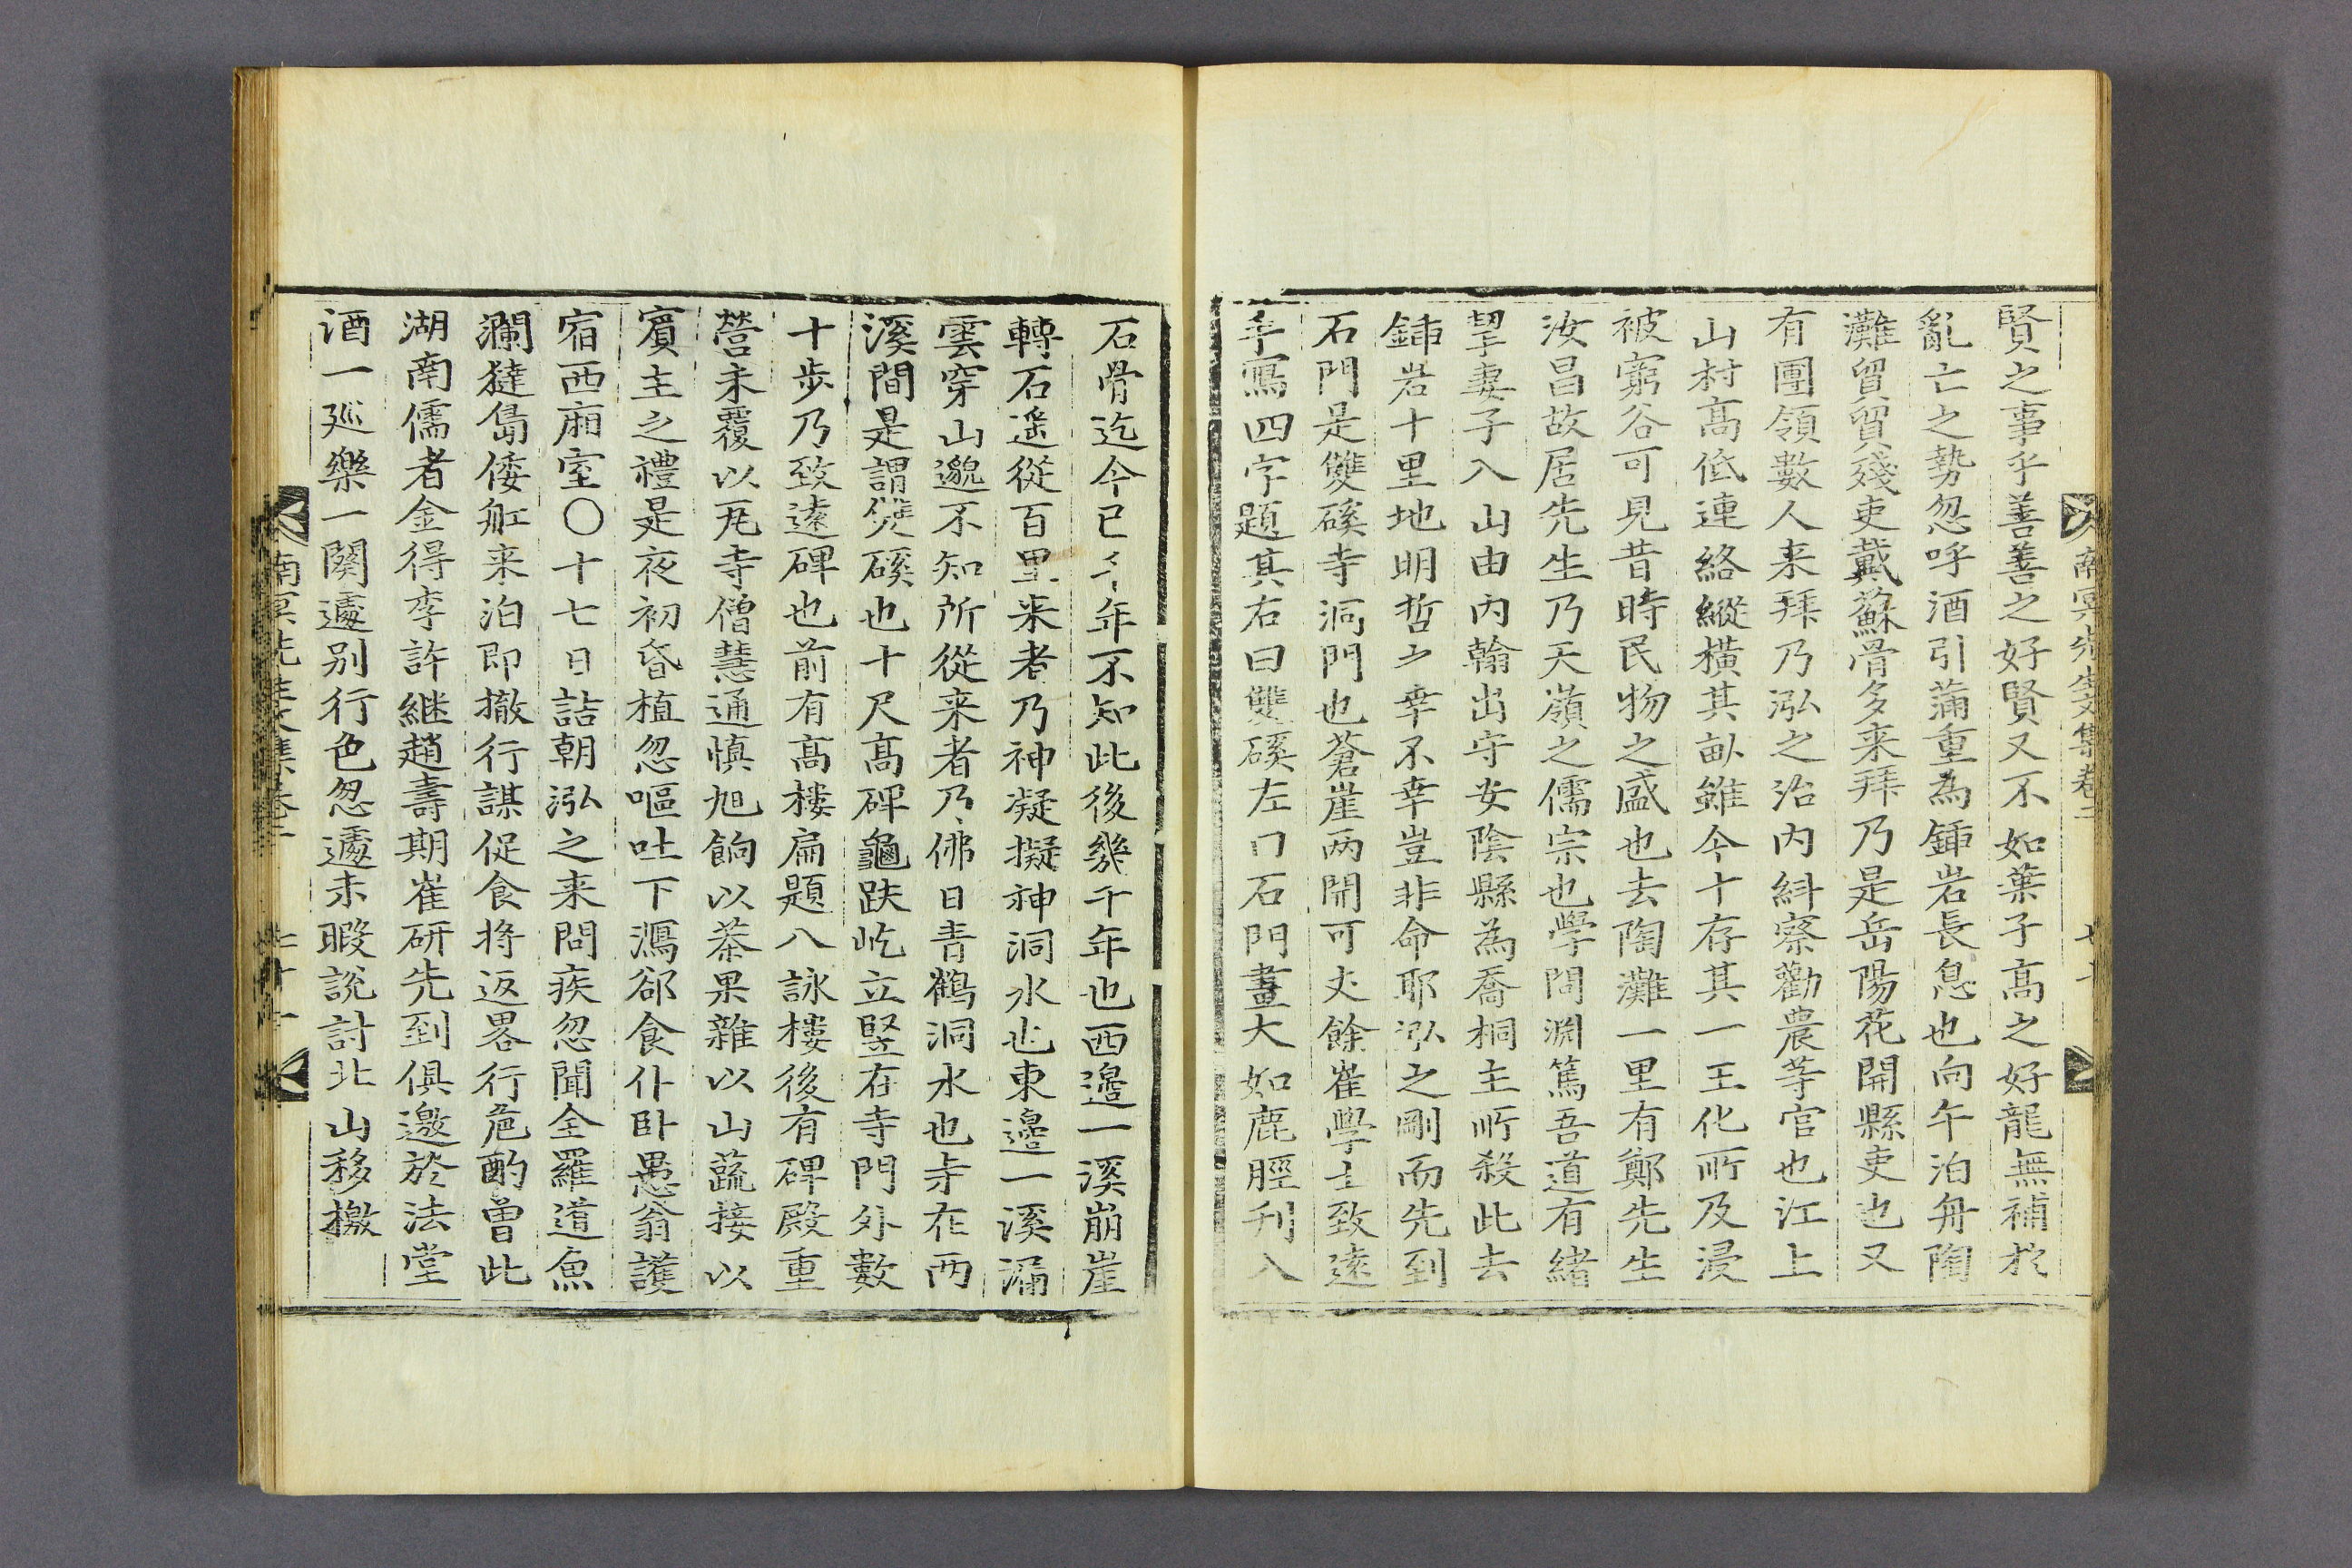 南冥先生文集卷二
七十
賢之事乎善善之好賢又不如葉子高之好龍無補於
亂亡之勢忽呼酒引滿重為鍤岩長息也向午泊舟陶
灘貿貿殘吏戴蘇骨多来拜乃是岳陽花開縣吏也又
有團領數人来拜乃泓之治内糾察勸農等官也江上
山村高低連絡縱橫其畝雖今十存其一王化所及浸
被窮谷可見昔時民物之盛也去陶灘一里有鄭先生
汝昌故居先生乃天嶺之儒宗也學問淵篤吾道有緒
挈妻子入山由内翰出守安陰縣為喬桐主所殺此去
鍤岩十里地明哲之幸不幸豈非命耶泓之剛而先到
石門是雙磎寺洞門也蒼崖兩開可丈餘崔學士致遠
手寫四字題其右曰雙磎左曰石門畫大如鹿脛刊入
石骨迄今已千年不知此後幾千年也西邊一溪崩崖
轉石遥從百里来者乃神凝擬神洞水也東邊一溪漏
雲穿山邈不知所從来者乃佛日青鶴洞水也寺在兩
溪間是謂雙磎也十尺高碑龜趺屹立竪在寺門外數
十步乃致遠碑也前有高樓扁題八詠樓後有碑殿重
營未覆以瓦寺僧慧通慎旭餉以茶果雜以山蔬接以
賓主之禮是夜初昏植忽嘔吐下瀉卻食仆卧愚翁護
宿西廂室〇十七日詰朝泓之来問疾忽聞全羅道魚
瀾㺚島倭舡来泊即撤行謀促食將返畧行巵酌曾此
湖南儒者金得李許継趙壽期崔研先到俱邀於法堂
酒一廵樂一闋遽别行色忽遽未暇說討北山移檄
南冥先生文集卷二
七十一